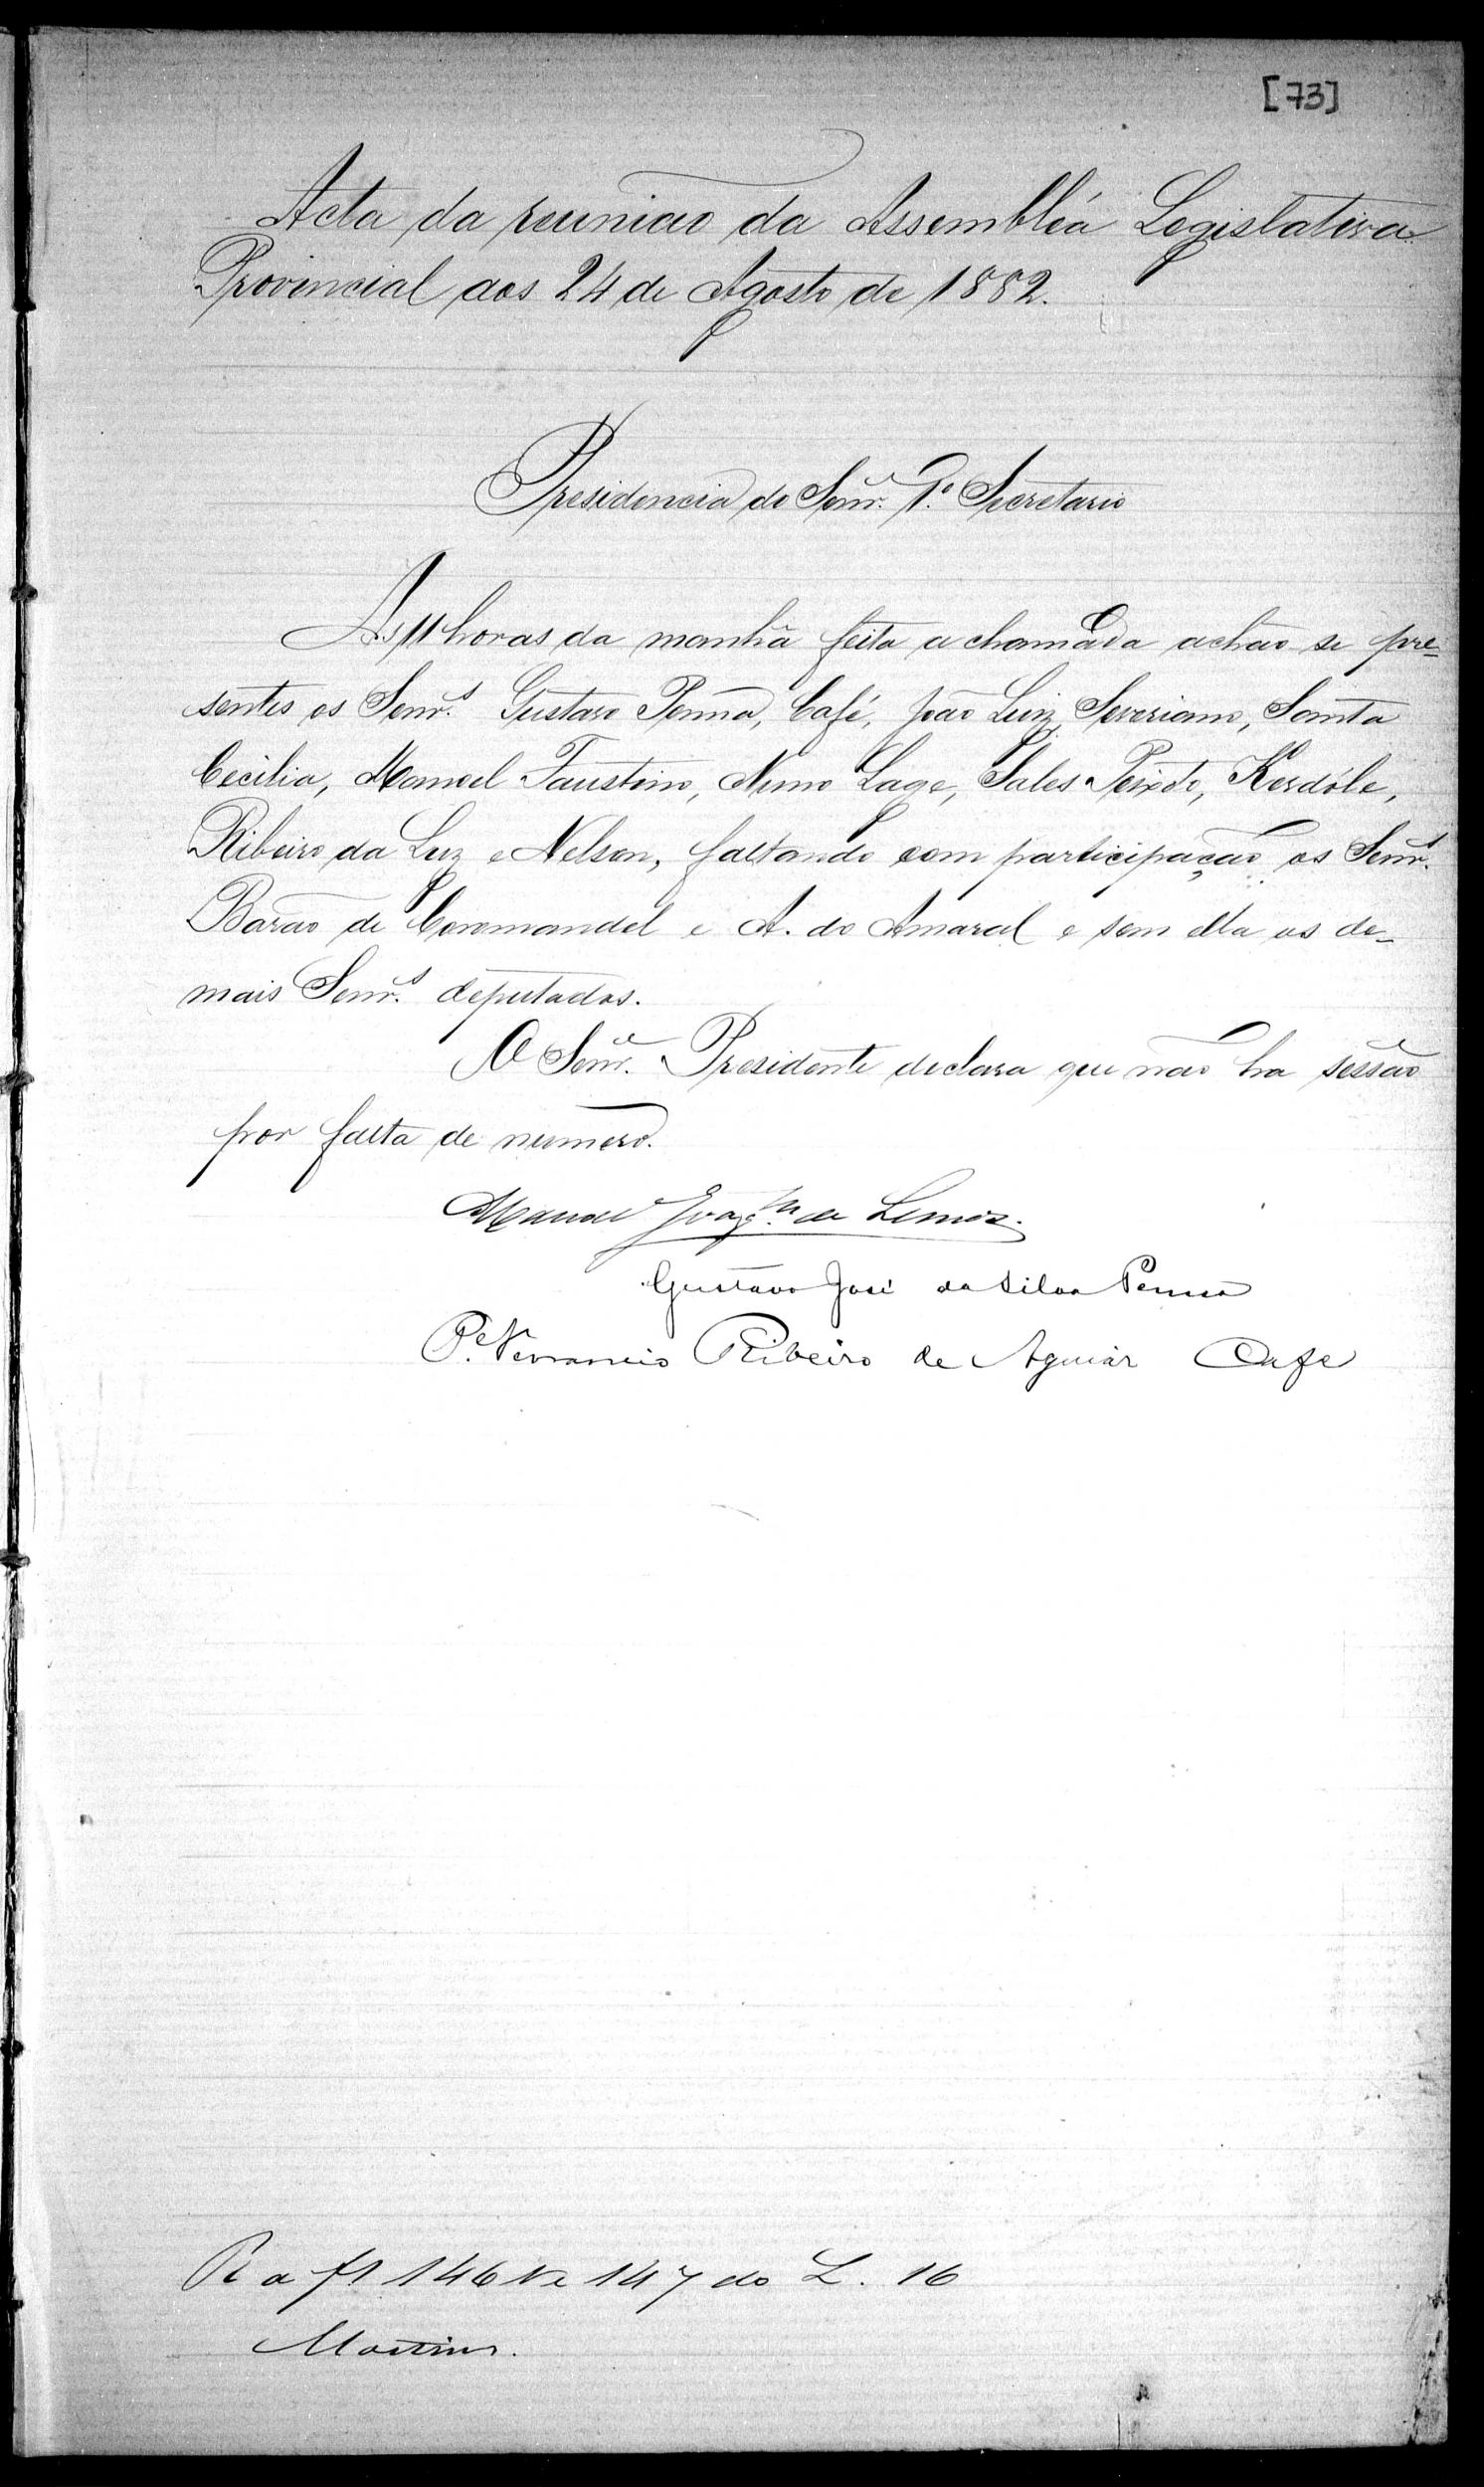 [73]
Acta da reunião da Assembléa Legislativa
Provincial aos 24 de Agosto de 1882.
Presidencia do Senr. 1º Secretario
As 11 horas da manhã feita a chamada achão-se pre-
sentes os Senrs. Gustavo Penna, Café, João Luiz, Severiano, Santa
Cecilia, Manoel Faustino, Nuno Lage, Sales Peixoto, Kerdóle,
Ribeiro da Luz e Nelson, faltando com participação os Senrs.
Barão de Coromandel e A. do Amaral e sem ella os de-
mais Senrs. deputados.
O Senr. Presidente declara que não ha sessão
por falta de numero.
Manoel Joaqm. de Lemos.
Gustavo José da Silva Penna
Pe. Venancio Ribeiro de Aguiar Café
R a fl 146 v e 147 do L. 16
Martins.